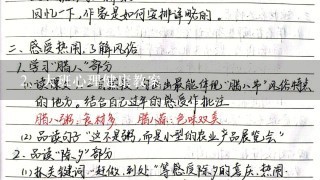 回忆一下，作家是如何安排详略的。
二、感受热闹，了解风俗
1、学习“腊八”部分
2、大班心理健康教育
最能体现“腊八节”风俗特点
的地方。结合自己过年的感受作批注
腊八粥：食材多 腊八蒜：色味双美
(2) 品读句子“这不是粥，而是小型的农业产品展览会”
2、品读“除夕”部分
(1) 抓关键词：赶做、到处 等感受除夕的喜庆、热闹